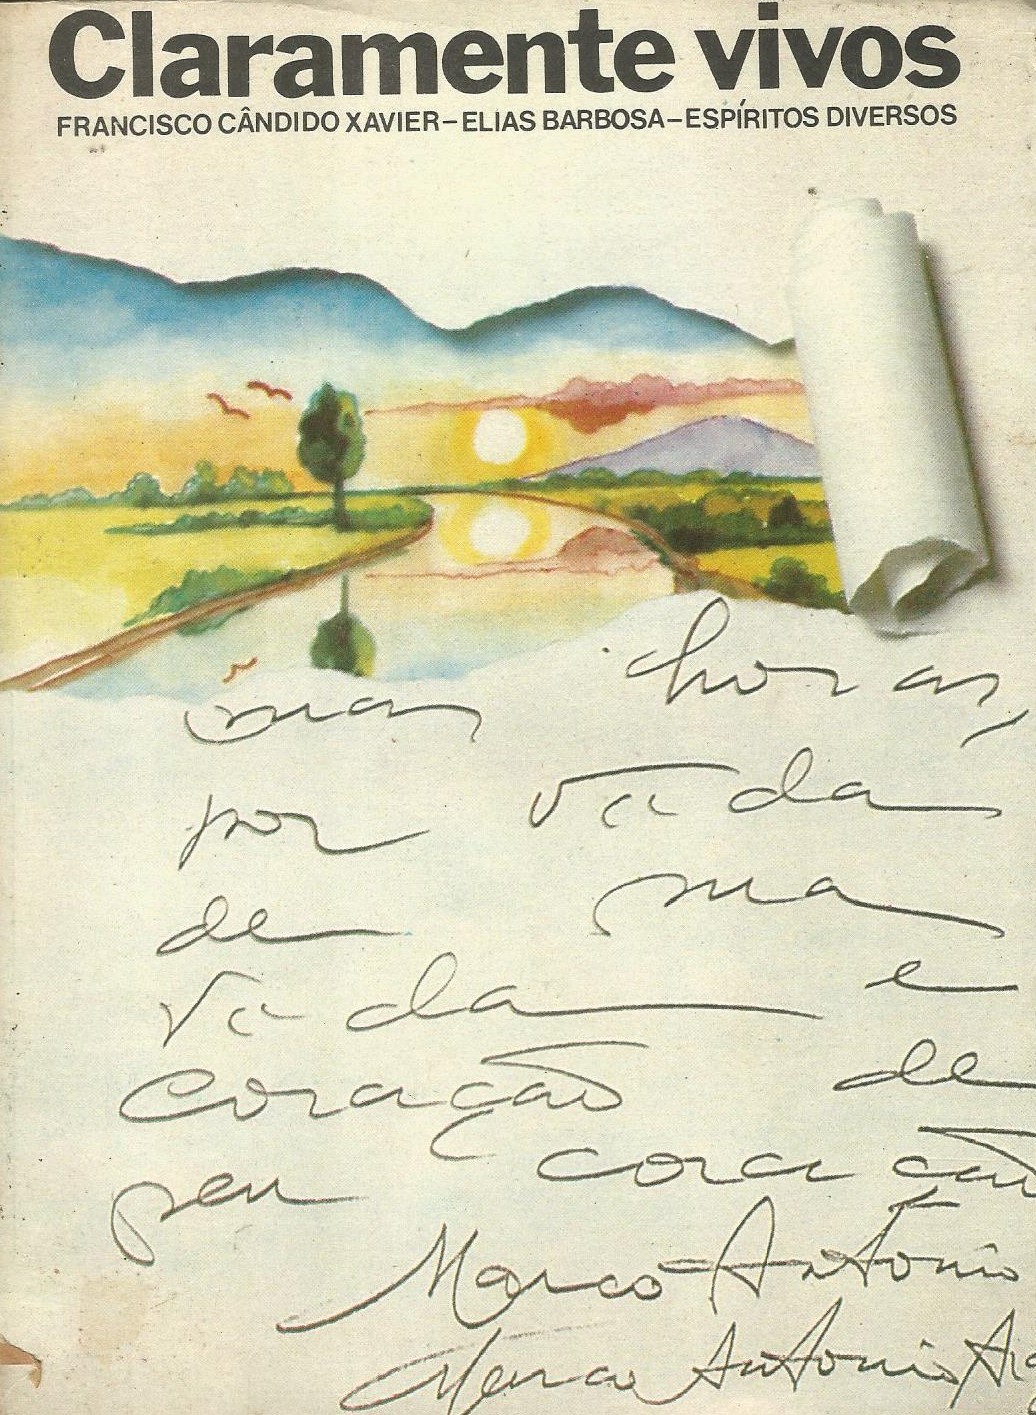 Claramente vivos
FRANCISCO CÂNDIDO XAVIER-ELIAS BARBOSA-ESPÍRITOS DIVERSOS
suas horas,
por vida
de sua
vida e
coração de
seu coração
Marco Antônio
Marco Antonio